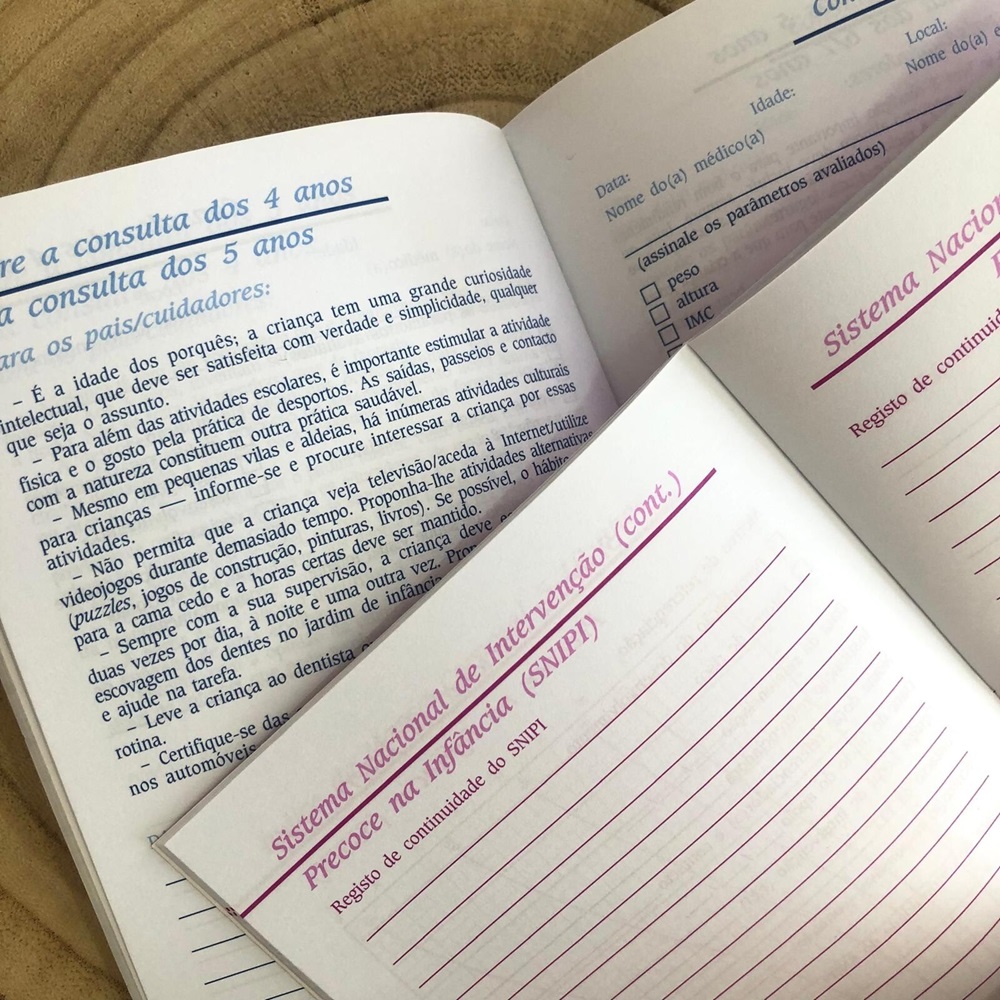 re a consulta dos 4 anos
a consulta dos 5 anos
ara os pais/cuidadores:
– É a idade dos porquês; a criança tem uma grande curiosidade
intelectual, que deve ser satisfeita com verdade e simplicidade, qualquer
que seja o assunto.
– Para além das atividades escolares, é importante estimular a atividade
física e o gosto pela prática de desportos. As saídas, passeios e contacto
com a natureza constituem outra prática saudável.
– Mesmo em pequenas vilas e aldeias, há inúmeras atividades culturais
para crianças — informe-se e procure interessar a criança por essas
atividades.
– Não permita que a criança veja televisão/aceda à Internet/utilize
videojogos durante demasiado tempo. Proponha-lhe atividades alternativas
(puzzles, jogos de construção, pinturas, livros). Se possível, o hábito
para a cama cedo e a horas certas deve ser mantido.
– Sempre com a sua supervisão, a criança deve
duas vezes por dia, à noite e uma outra vez.
escovagem dos dentes no jardim de infância
e ajude na tarefa.
– Leve a criança ao dentista
rotina.
– Certifique-se das
nos automóveis
Local:
Nome do(a) e
Idade:
Data:
Nome do(a) médico(a)
(assinale os parâmetros avaliados)
peso
altura
IMC
Sistema Nacion
Registo de continuid
Sistema Nacional de Intervenção (cont.)
Precoce na Infância (SNIPI)
Registo de continuidade do SNIPI